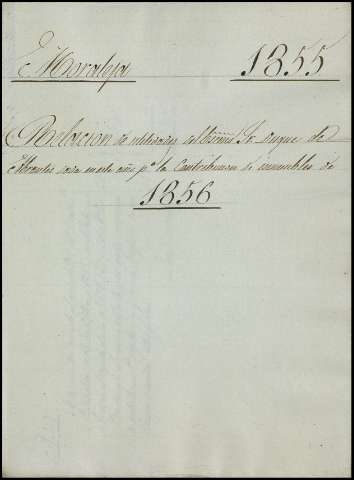 Moraleja 1855
Relacion de utilidades del Exmo. Sr. Duque de
Abrantes dada en este año pª la Contribucion de inmuebles de
1856